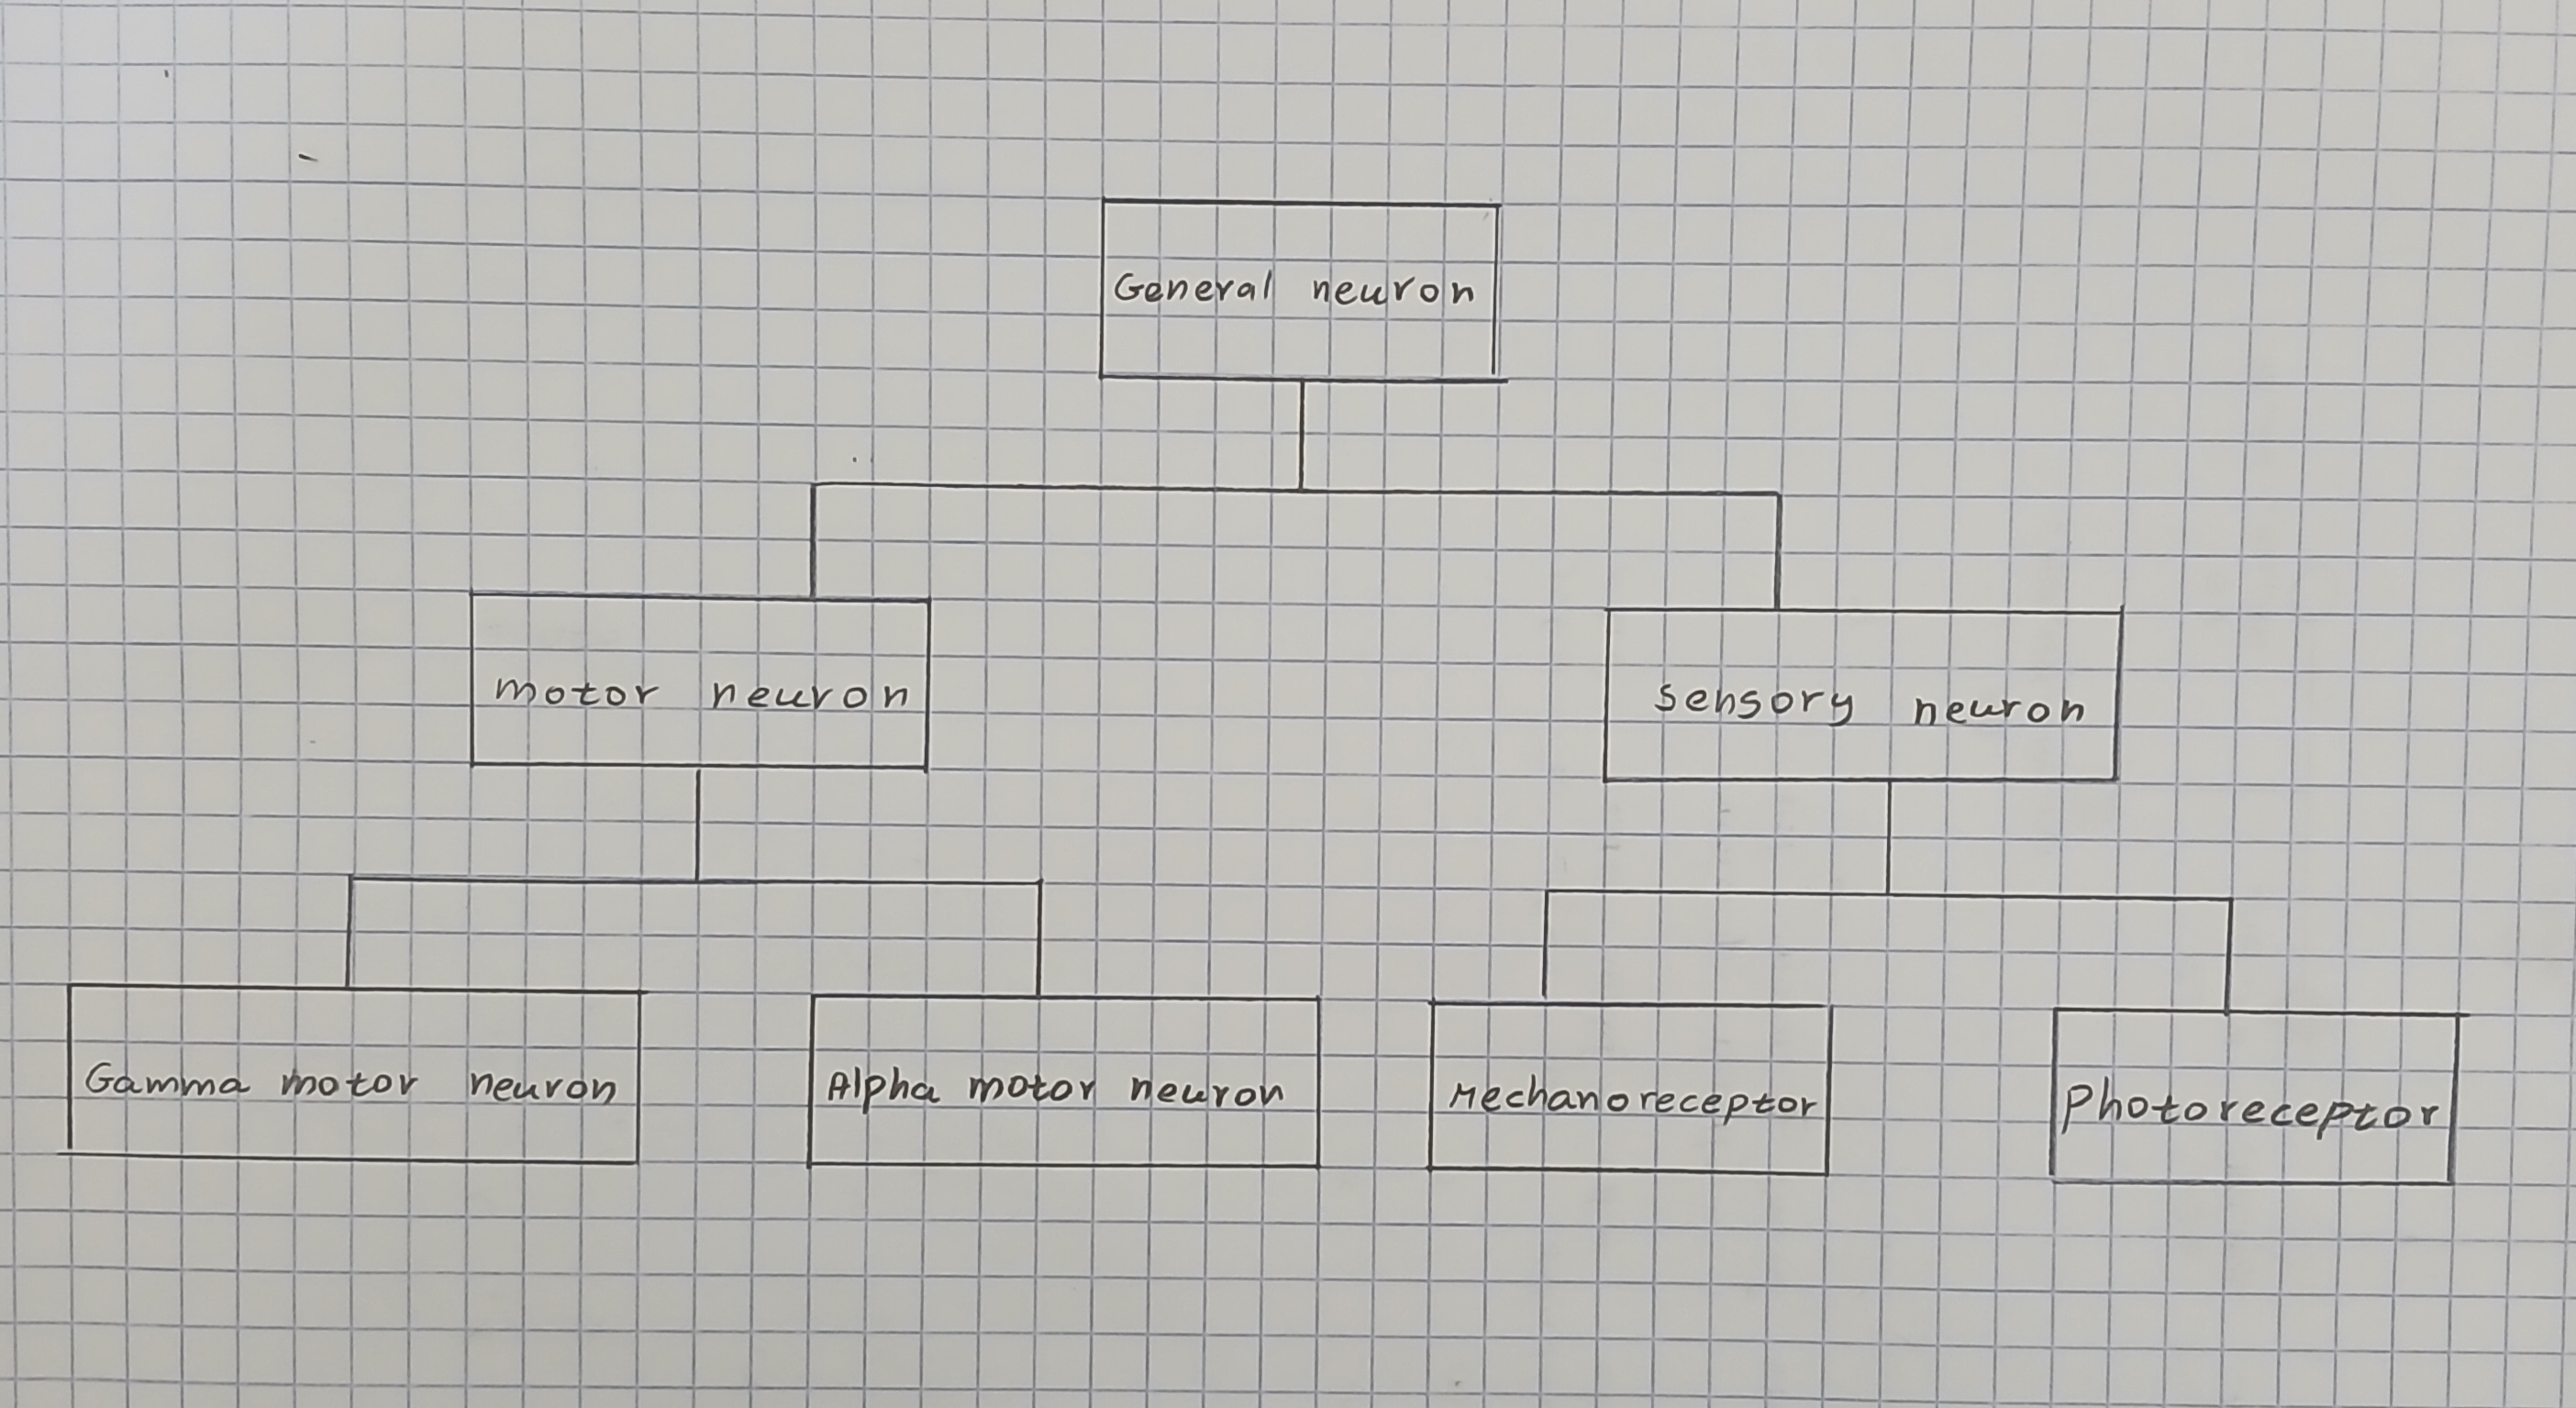 General neuron
motor neuron
sensory neuron
Gamma motor neuron
Alpha motor neuron
Mechanoreceptor
Photoreceptor